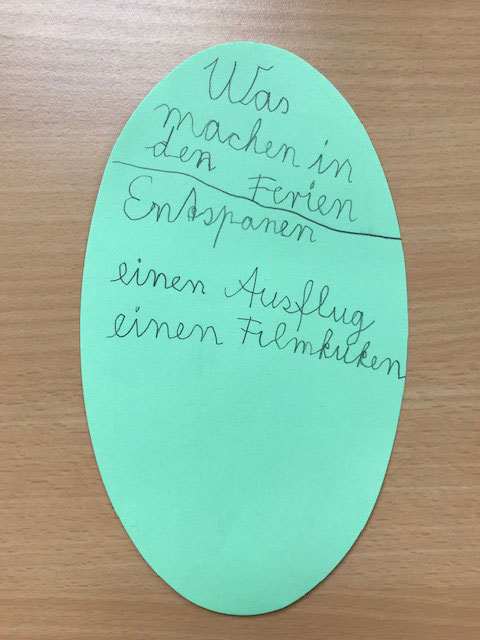 Was
machen in
den Ferien
Entspanen
einen Ausflug
einen Filmkuken